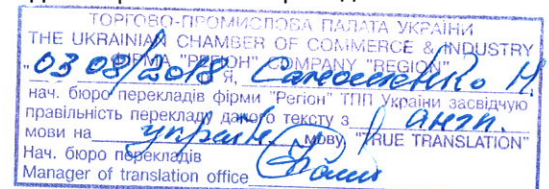 ТОРГОВО-ПРОМИСЛОВА ПАЛАТА УКРАЇНИ
THE UKRAINIAN CHAMBER OF COMMERCE & INDUSTRY
ФІРМА "РЕГІОН" COMPANY "REGION"
"03 08/2018 Я, Самошенко Н.
нач. бюро перекладів фірми "Регіон" ТПП України засвідчую
правільність перекладу даного тексту з англ.
мови на українс. мову. "TRUE TRANSLATION"
Нач. бюро перекладів
Manager of translation office